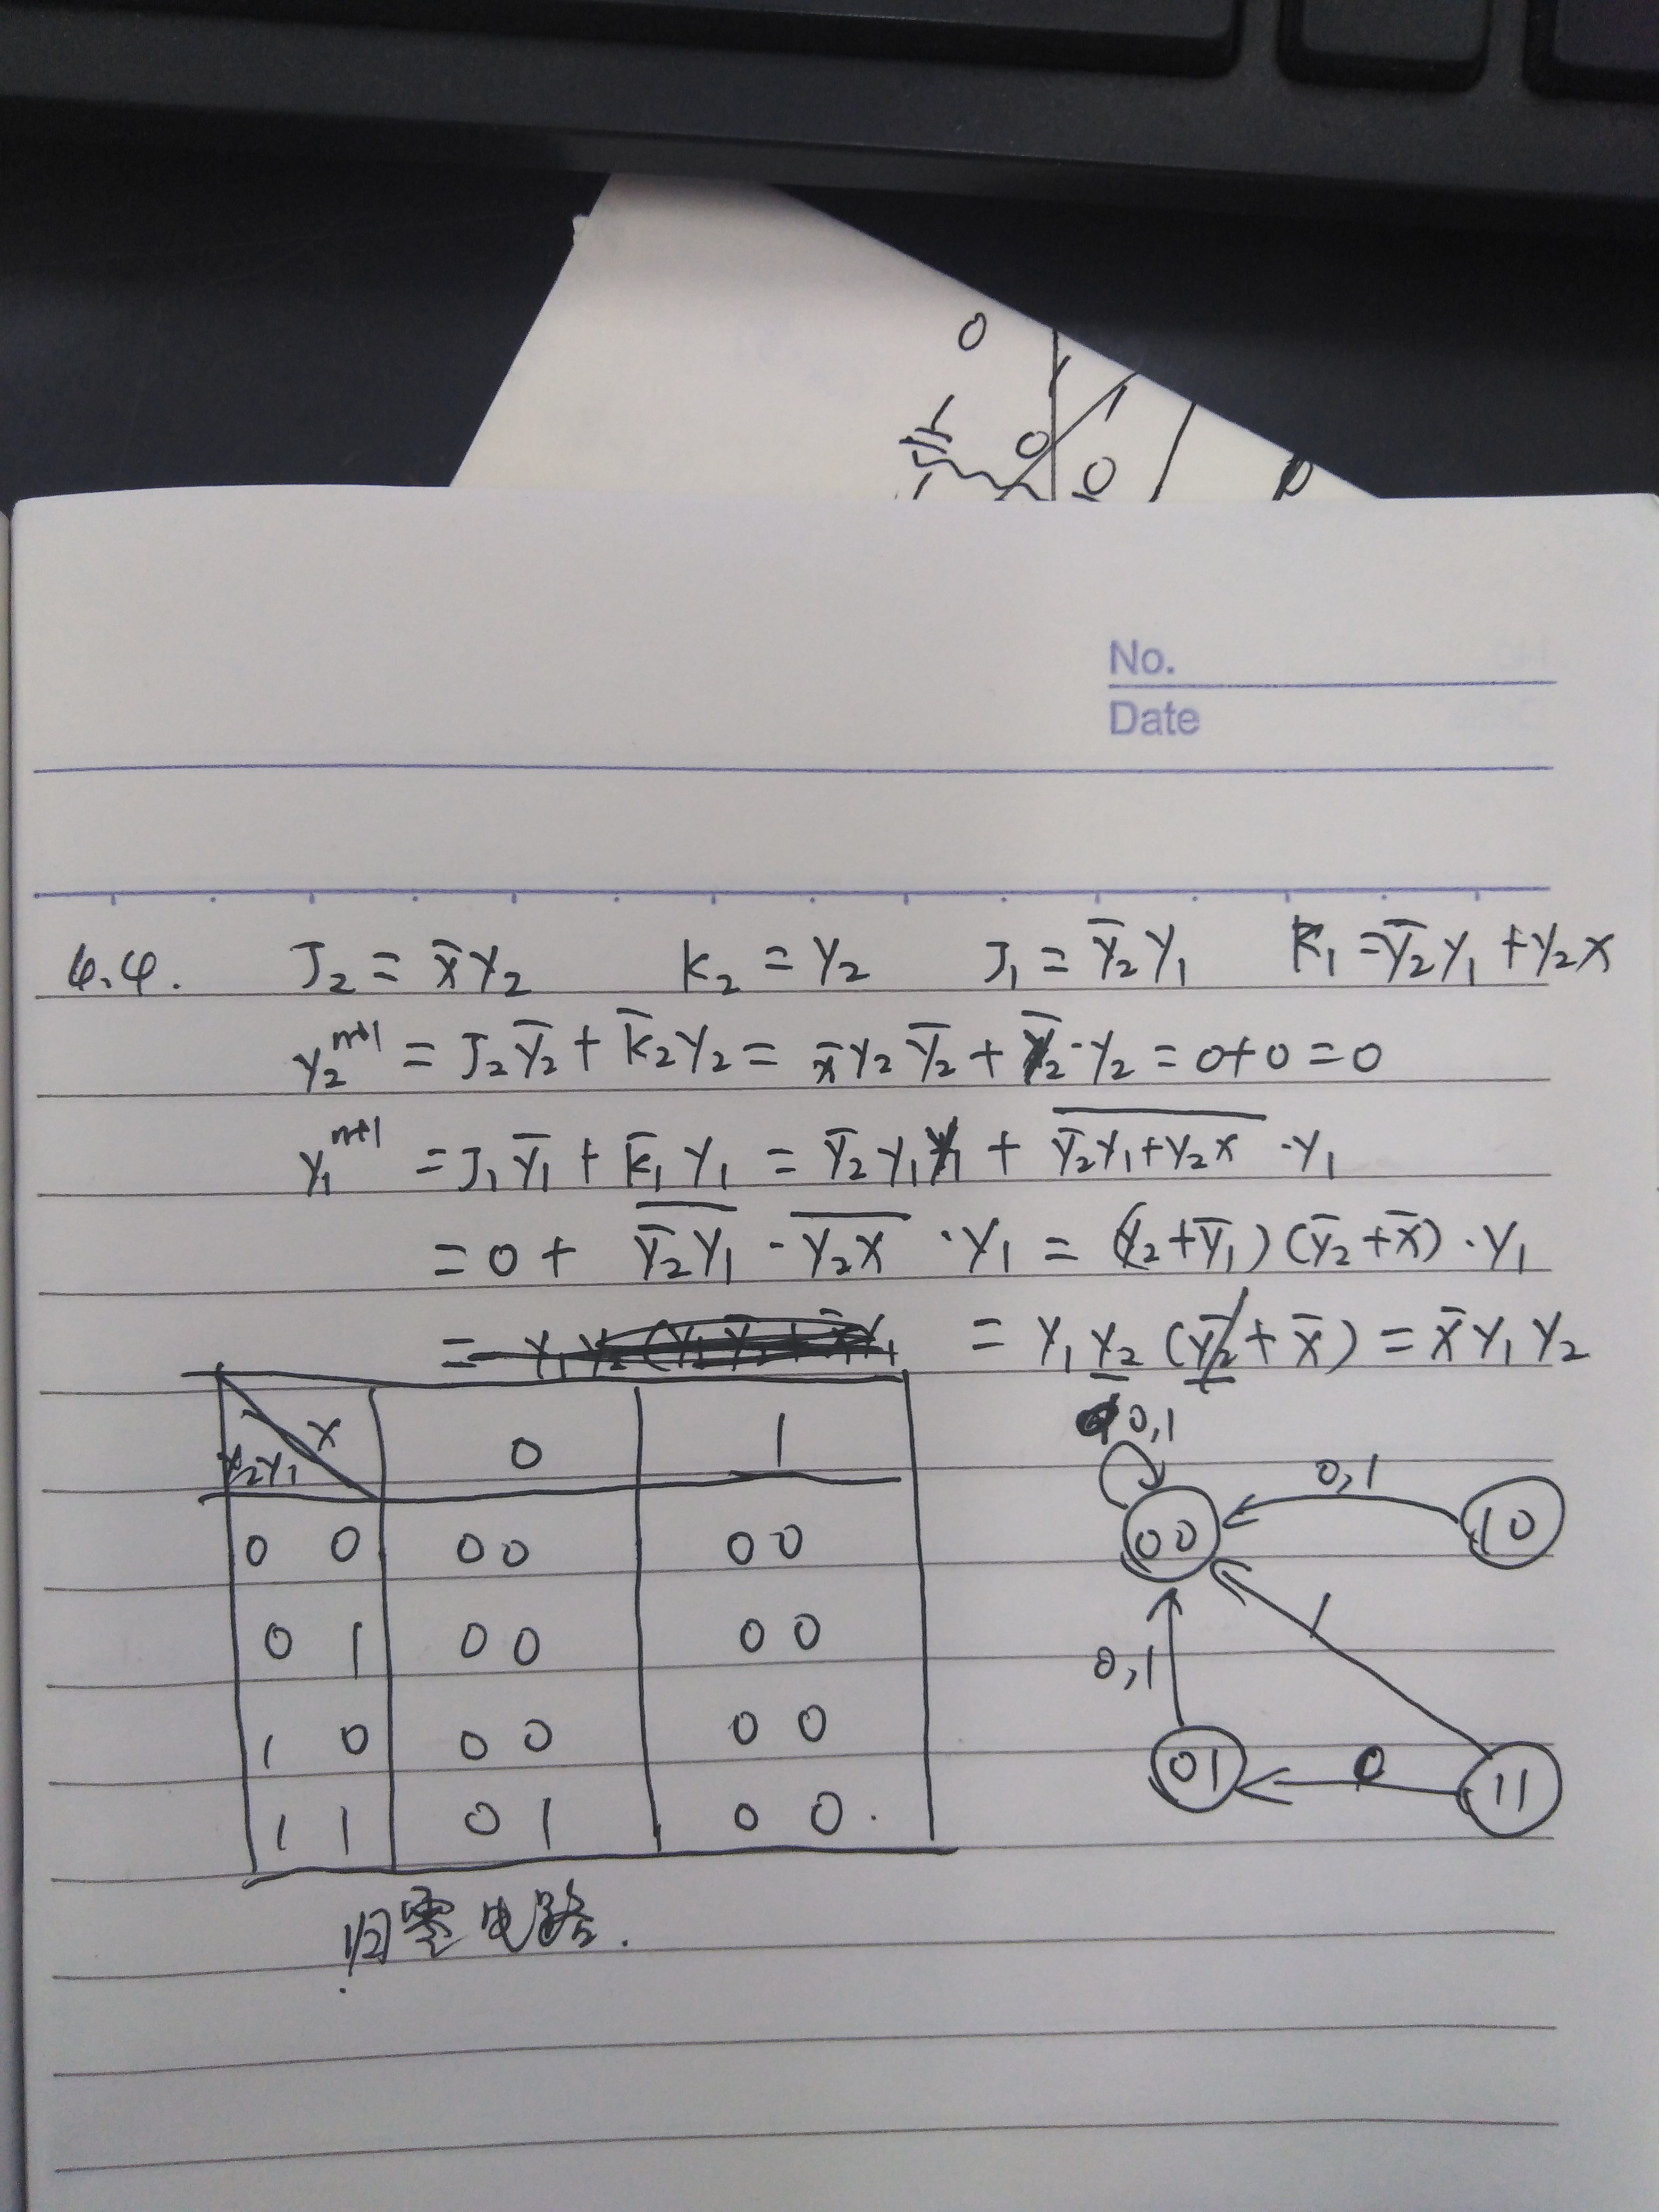 0
1
0
0
No.
Date
6.4. J₂ = x̄y₂ K₂ = y₂ J₁ = ȳ₂y₁ K₁ = ȳ₂y₁ + y₂x
y₂ⁿ⁺¹ = J₂ȳ₂ + K̄₂y₂ = x̄y₂ȳ₂ + ȳ₂·y₂ = 0+0 = 0
y₁ⁿ⁺¹ = J₁ȳ₁ + K̄₁y₁ = ȳ₂y₁ȳ₁ + \overline{ȳ₂y₁+y₂x}·y₁
= 0 + \overline{ȳ₂y₁}·\overline{y₂x}·y₁ = (y₂+ȳ₁)(ȳ₂+x̄)·y₁
= y₁y₂(ȳ₂+x̄) = x̄y₁y₂
x
y₂y₁ 0 1
0 0 00 00
0 1 00 00
1 0 00 00
1 1 01 00.
0,1
00
0,1
10
0,1
1
01
0
11
归零电路.